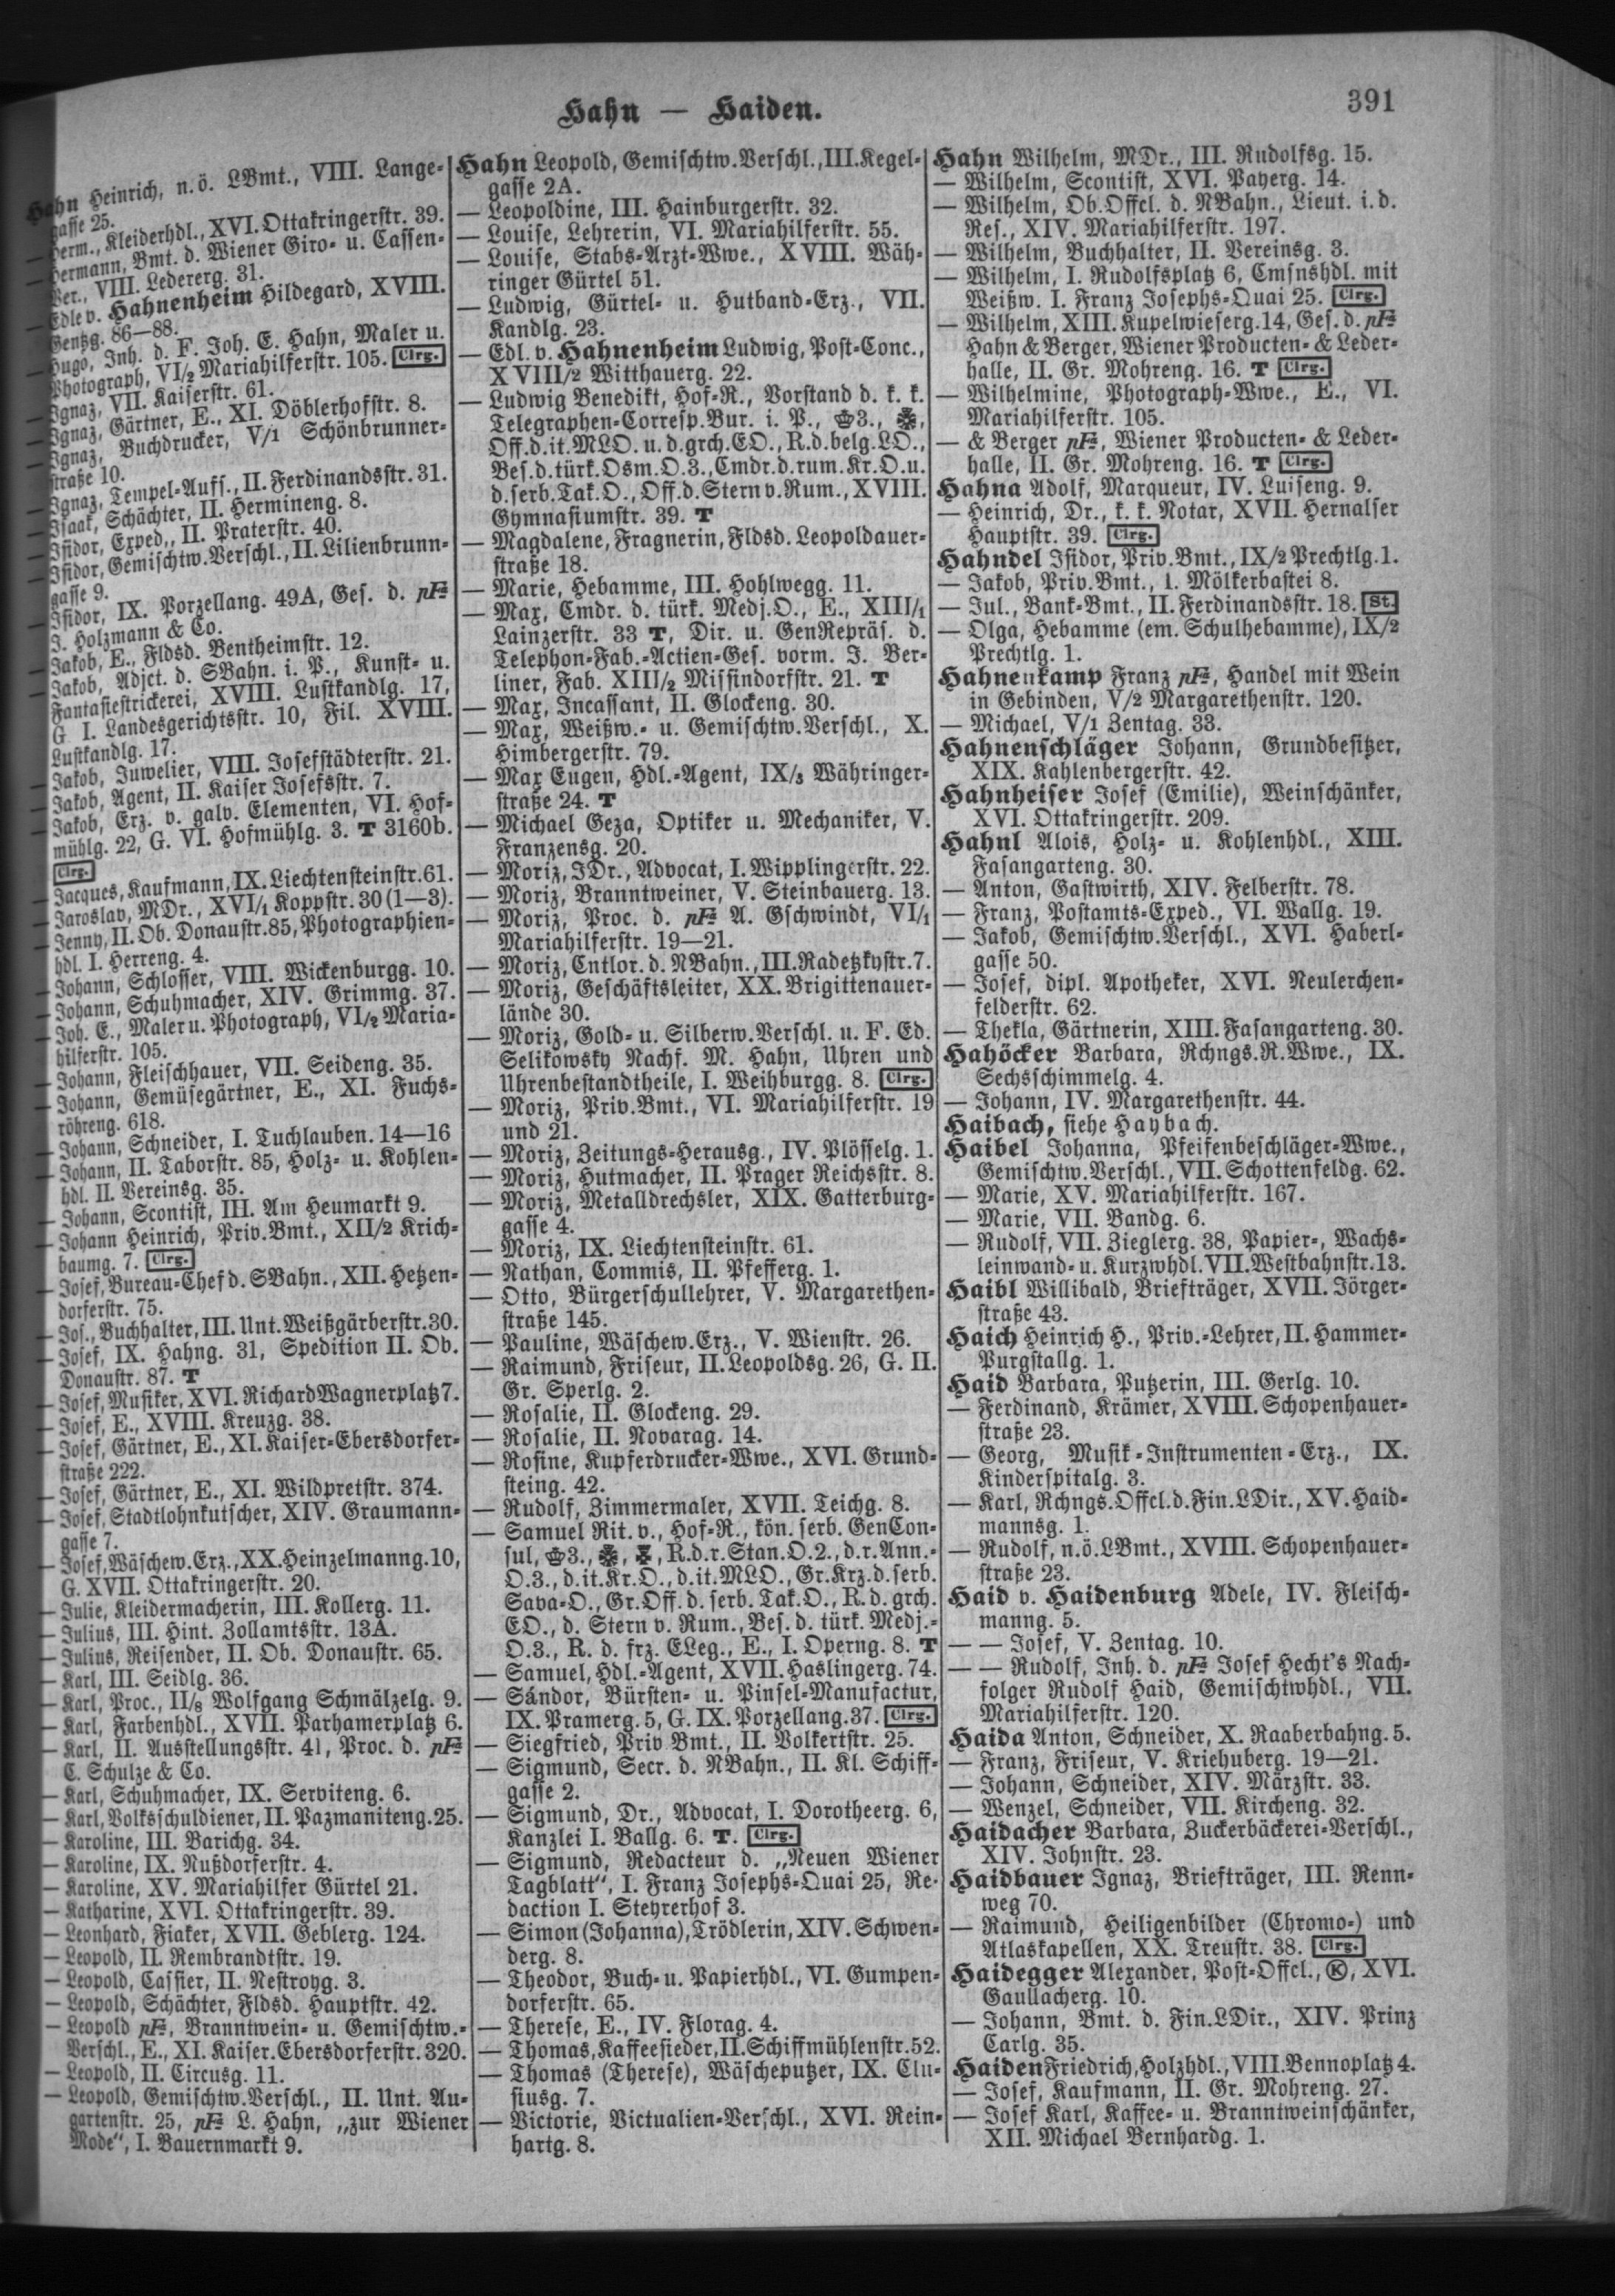 Hahn — Haiden.
391
Hahn Heinrich, n.ö. LBmt., VIII. Lange-
gasse 25.
— Herm., Kleiderhdl., XVI. Ottakringerstr. 39.
— Hermann, Bmt. d. Wiener Giro- u. Cassen-
Ver., VIII. Ledererg. 31.
— Edle v. Hahnenheim Hildegard, XVIII.
Gentzg. 86—88.
— Hugo, Inh. d. F. Joh. E. Hahn, Maler u.
Photograph, VI/2 Mariahilferstr. 105. Clrg.
— Ignaz, VII. Kaiserstr. 61.
— Ignaz, Gärtner, E., XI. Döblerhofstr. 8.
— Ignaz, Buchdrucker, V/1 Schönbrunner-
straße 10.
— Ignaz, Tempel-Aufs., II. Ferdinandsstr. 31.
— Isaak, Schächter, II. Hermineng. 8.
— Isidor, Exped., II. Praterstr. 40.
— Isidor, Gemischtw.Verschl., II. Lilienbrunn-
gasse 9.
— Isidor, IX. Porzellang. 49A, Ges. d. pF
J. Holzmann & Co.
— Jakob, E., Fldsd. Bentheimstr. 12.
— Jakob, Adjct. d. SBahn. i. P., Kunst- u.
Fantasiestrickerei, XVIII. Lustkandlg. 17,
G I. Landesgerichtsstr. 10, Fil. XVIII.
Lustkandlg. 17.
— Jakob, Juwelier, VIII. Josefstädterstr. 21.
— Jakob, Agent, II. Kaiser Josefsstr. 7.
— Jakob, Erz. v. galv. Elementen, VI. Hof-
mühlg. 22, G. VI. Hofmühlg. 3. T 3160b.
Clrg.
— Jacques, Kaufmann, IX. Liechtensteinstr. 61.
— Jaroslav, MDr., XVI/1 Koppstr. 30 (1—3).
— Jenny, II. Ob. Donaustr. 85, Photographien-
hdl. I. Herreng. 4.
— Johann, Schlosser, VIII. Wickenburgg. 10.
— Johann, Schuhmacher, XIV. Grimmg. 37.
— Joh. E., Maler u. Photograph, VI/2 Maria-
hilferstr. 105.
— Johann, Fleischhauer, VII. Seideng. 35.
— Johann, Gemüsegärtner, E., XI. Fuchs-
röhreng. 618.
— Johann, Schneider, I. Tuchlauben. 14—16
— Johann, II. Taborstr. 85, Holz- u. Kohlen-
hdl. II. Vereinsg. 35.
— Johann, Scontist, III. Am Heumarkt 9.
— Johann Heinrich, Priv.Bmt., XII/2 Krich-
baumg. 7. Clrg.
— Josef, Bureau-Chef d. SBahn., XII. Hetzen-
dorferstr. 75.
— Jos., Buchhalter, III. Unt. Weißgärberstr. 30.
— Josef, IX. Hahng. 31, Spedition II. Ob.
Donaustr. 87. T
— Josef, Musiker, XVI. Richard Wagnerplatz 7.
— Josef, E., XVIII. Kreuzg. 38.
— Josef, Gärtner, E., XI. Kaiser-Ebersdorfer-
straße 222.
— Josef, Gärtner, E., XI. Wildpretstr. 374.
— Josef, Stadtlohnkutscher, XIV. Graumann-
gasse 7.
— Josef, Wäschew.Erz., XX. Heinzelmanng. 10,
G. XVII. Ottakringerstr. 20.
— Julie, Kleidermacherin, III. Kollerg. 11.
— Julius, III. Hint. Zollamtsstr. 13A.
— Julius, Reisender, II. Ob. Donaustr. 65.
— Karl, III. Seidlg. 36.
— Karl, Proc., II/8 Wolfgang Schmälzelg. 9.
— Karl, Farbenhdl., XVII. Parhamerplatz 6.
— Karl, II. Ausstellungsstr. 41, Proc. d. pF
C. Schulze & Co.
— Karl, Schuhmacher, IX. Serviteng. 6.
— Karl, Volksschuldiener, II. Pazmaniteng. 25.
— Karoline, III. Barichg. 34.
— Karoline, IX. Nußdorferstr. 4.
— Karoline, XV. Mariahilfer Gürtel 21.
— Katharine, XVI. Ottakringerstr. 39.
— Leonhard, Fiaker, XVII. Geblerg. 124.
— Leopold, II. Rembrandtstr. 19.
— Leopold, Cassier, II. Nestroyg. 3.
— Leopold, Schächter, Fldsd. Hauptstr. 42.
— Leopold pF, Branntwein- u. Gemischtw.-
Verschl., E., XI. Kaiser.Ebersdorferstr. 320.
— Leopold, II. Circusg. 11.
— Leopold, Gemischtw.Verschl., II. Unt. Au-
gartenstr. 25, pF L. Hahn, „zur Wiener
Mode“, I. Bauernmarkt 9.
Hahn Leopold, Gemischtw.Verschl., III. Kegel-
gasse 2A.
— Leopoldine, III. Hainburgerstr. 32.
— Louise, Lehrerin, VI. Mariahilferstr. 55.
— Louise, Stabs-Arzt-Wwe., XVIII. Wäh-
ringer Gürtel 51.
— Ludwig, Gürtel- u. Hutband-Erz., VII.
Kandlg. 23.
— Edl. v. Hahnenheim Ludwig, Post-Conc.,
XVIII/2 Witthauerg. 22.
— Ludwig Benedikt, Hof-R., Vorstand d. k. k.
Telegraphen-Corresp.Bur. i. P., 3.,
Off.d.it.MLO. u. d.grch.EO., R.d.belg.LO.,
Bes.d.türk.Osm.O.3., Cmdr.d.rum.Kr.O.u.
d.serb.Tak.O., Off.d.Stern v.Rum., XVIII.
Gymnasiumstr. 39. T
— Magdalene, Fragnerin, Fldsd. Leopoldauer-
straße 18.
— Marie, Hebamme, III. Hohlwegg. 11.
— Max, Cmdr. d. türk. Medj.O., E., XIII/1
Lainzerstr. 33 T, Dir. u. GenRepräs. d.
Telephon-Fab.-Actien-Ges. vorm. J. Ber-
liner, Fab. XIII/2 Missindorfstr. 21. T
— Max, Incassant, II. Glockeng. 30.
— Max, Weißw.- u. Gemischtw.Verschl., X.
Himbergerstr. 79.
— Max Eugen, Hdl.-Agent, IX/3 Währinger-
straße 24. T
— Michael Geza, Optiker u. Mechaniker, V.
Franzensg. 20.
— Moriz, JDr., Advocat, I. Wipplingerstr. 22.
— Moriz, Branntweiner, V. Steinbauerg. 13.
— Moriz, Proc. d. pF A. Gschwindt, VI/1
Mariahilferstr. 19—21.
— Moriz, Cntlor. d. NBahn., III. Radetzkystr. 7.
— Moriz, Geschäftsleiter, XX. Brigittenauer-
lände 30.
— Moriz, Gold- u. Silberw.Verschl. u. F. Ed.
Selikowsky Nachf. M. Hahn, Uhren und
Uhrenbestandtheile, I. Weihburgg. 8. Clrg.
— Moriz, Priv.Bmt., VI. Mariahilferstr. 19
und 21.
— Moriz, Zeitungs-Herausg., IV. Plösselg. 1.
— Moriz, Hutmacher, II. Prager Reichsstr. 8.
— Moriz, Metalldrechsler, XIX. Gatterburg-
gasse 4.
— Moriz, IX. Liechtensteinstr. 61.
— Nathan, Commis, II. Pfefferg. 1.
— Otto, Bürgerschullehrer, V. Margarethen-
straße 145.
— Pauline, Wäschew.Erz., V. Wienstr. 26.
— Raimund, Friseur, II. Leopoldsg. 26, G. II.
Gr. Sperlg. 2.
— Rosalie, II. Glockeng. 29.
— Rosalie, II. Novarag. 14.
— Rosine, Kupferdrucker-Wwe., XVI. Grund-
steing. 42.
— Rudolf, Zimmermaler, XVII. Teichg. 8.
— Samuel Rit. v., Hof-R., kön. serb. GenCon-
sul, 3., R.d.r.Stan.O.2., d.r.Ann.-
O.3., d.it.Kr.O., d.it.MLO., Gr.Krz.d.serb.
Sava-O., Gr.Off. d. serb. Tak.O., R. d. grch.
EO., d. Stern v. Rum., Bes. d. türk. Medj.-
O.3., R. d. frz. ELeg., E., I. Operng. 8. T
— Samuel, Hdl.-Agent, XVII. Haslingerg. 74.
— Sándor, Bürsten- u. Pinsel-Manufactur,
IX. Pramerg. 5, G. IX. Porzellang. 37. Clrg.
— Siegfried, Priv.Bmt., II. Volkertstr. 25.
— Sigmund, Secr. d. NBahn., II. Kl. Schiff-
gasse 2.
— Sigmund, Dr., Advocat, I. Dorotheerg. 6,
Kanzlei I. Ballg. 6. T. Clrg.
— Sigmund, Redacteur d. „Neuen Wiener
Tagblatt“, I. Franz Josephs-Quai 25, Re-
daction I. Steyrerhof 3.
— Simon (Johanna), Trödlerin, XIV. Schwen-
derg. 8.
— Theodor, Buch- u. Papierhdl., VI. Gumpen-
dorferstr. 65.
— Therese, E., IV. Florag. 4.
— Thomas, Kaffeesieder, II. Schiffmühlenstr. 52.
— Thomas (Therese), Wäscheputzer, IX. Clu-
siusg. 7.
— Victorie, Victualien-Verschl., XVI. Rein-
hartg. 8.
Hahn Wilhelm, MDr., III. Rudolfsg. 15.
— Wilhelm, Scontist, XVI. Payerg. 14.
— Wilhelm, Ob.Offcl. d. NBahn., Lieut. i. d.
Res., XIV. Mariahilferstr. 197.
— Wilhelm, Buchhalter, II. Vereinsg. 3.
— Wilhelm, I. Rudolfsplatz 6, Cmsnshdl. mit
Weißw. I. Franz Josephs-Quai 25. Clrg.
— Wilhelm, XIII. Kupelwieserg. 14, Ges. d. pF
Hahn & Berger, Wiener Producten- & Leder-
halle, II. Gr. Mohreng. 16. T Clrg.
— Wilhelmine, Photograph-Wwe., E., VI.
Mariahilferstr. 105.
— & Berger pF, Wiener Producten- & Leder-
halle, II. Gr. Mohreng. 16. T Clrg.
Hahna Adolf, Marqueur, IV. Luiseng. 9.
— Heinrich, Dr., k. k. Notar, XVII. Hernalser
Hauptstr. 39. Clrg.
Hahndel Isidor, Priv.Bmt., IX/2 Prechtlg. 1.
— Jakob, Priv.Bmt., I. Mölkerbastei 8.
— Jul., Bank-Bmt., II. Ferdinandsstr. 18. St.
— Olga, Hebamme (em. Schulhebamme), IX/2
Prechtlg. 1.
Hahnenkamp Franz pF, Handel mit Wein
in Gebinden, V/2 Margarethenstr. 120.
— Michael, V/1 Zentag. 33.
Hahnenschläger Johann, Grundbesitzer,
XIX. Kahlenbergerstr. 42.
Hahnheiser Josef (Emilie), Weinschänker,
XVI. Ottakringerstr. 209.
Hahnl Alois, Holz- u. Kohlenhdl., XIII.
Fasangarteng. 30.
— Anton, Gastwirth, XIV. Felberstr. 78.
— Franz, Postamts-Exped., VI. Wallg. 19.
— Jakob, Gemischtw.Verschl., XVI. Haberl-
gasse 50.
— Josef, dipl. Apotheker, XVI. Neulerchen-
felderstr. 62.
— Thekla, Gärtnerin, XIII. Fasangarteng. 30.
Hahöcker Barbara, Rchngs.R.Wwe., IX.
Sechsschimmelg. 4.
— Johann, IV. Margarethenstr. 44.
Haibach, siehe Haybach.
Haibel Johanna, Pfeifenbeschläger-Wwe.,
Gemischtw.Verschl., VII. Schottenfeldg. 62.
— Marie, XV. Mariahilferstr. 167.
— Marie, VII. Bandg. 6.
— Rudolf, VII. Zieglerg. 38, Papier-, Wachs-
leinwand- u. Kurzwhdl. VII. Westbahnstr. 13.
Haibl Willibald, Briefträger, XVII. Jörger-
straße 43.
Haich Heinrich H., Priv.-Lehrer, II. Hammer-
Purgstallg. 1.
Haid Barbara, Putzerin, III. Gerlg. 10.
— Ferdinand, Krämer, XVIII. Schopenhauer-
straße 23.
— Georg, Musik-Instrumenten-Erz., IX.
Kinderspitalg. 3.
— Karl, Rchngs.Offcl.d.Fin.LDir., XV. Haid-
mannsg. 1.
— Rudolf, n.ö.LBmt., XVIII. Schopenhauer-
straße 23.
Haid v. Haidenburg Adele, IV. Fleisch-
manng. 5.
— — Josef, V. Zentag. 10.
— — Rudolf, Inh. d. pF Josef Hecht's Nach-
folger Rudolf Haid, Gemischtwhdl., VII.
Mariahilferstr. 120.
Haida Anton, Schneider, X. Raaberbahng. 5.
— Franz, Friseur, V. Kriehuberg. 19—21.
— Johann, Schneider, XIV. Märzstr. 33.
— Wenzel, Schneider, VII. Kircheng. 32.
Haidacher Barbara, Zuckerbäckerei-Verschl.,
XIV. Johnstr. 23.
Haidbauer Ignaz, Briefträger, III. Renn-
weg 70.
— Raimund, Heiligenbilder (Chromo-) und
Atlaskapellen, XX. Treustr. 38. Clrg.
Haidegger Alexander, Post-Offcl., K, XVI.
Gaullacherg. 10.
— Johann, Bmt. d. Fin.LDir., XIV. Prinz
Carlg. 35.
Haiden Friedrich, Holzhdl., VIII. Bennoplatz 4.
— Josef, Kaufmann, II. Gr. Mohreng. 27.
— Josef Karl, Kaffee- u. Branntweinschänker,
XII. Michael Bernhardg. 1.